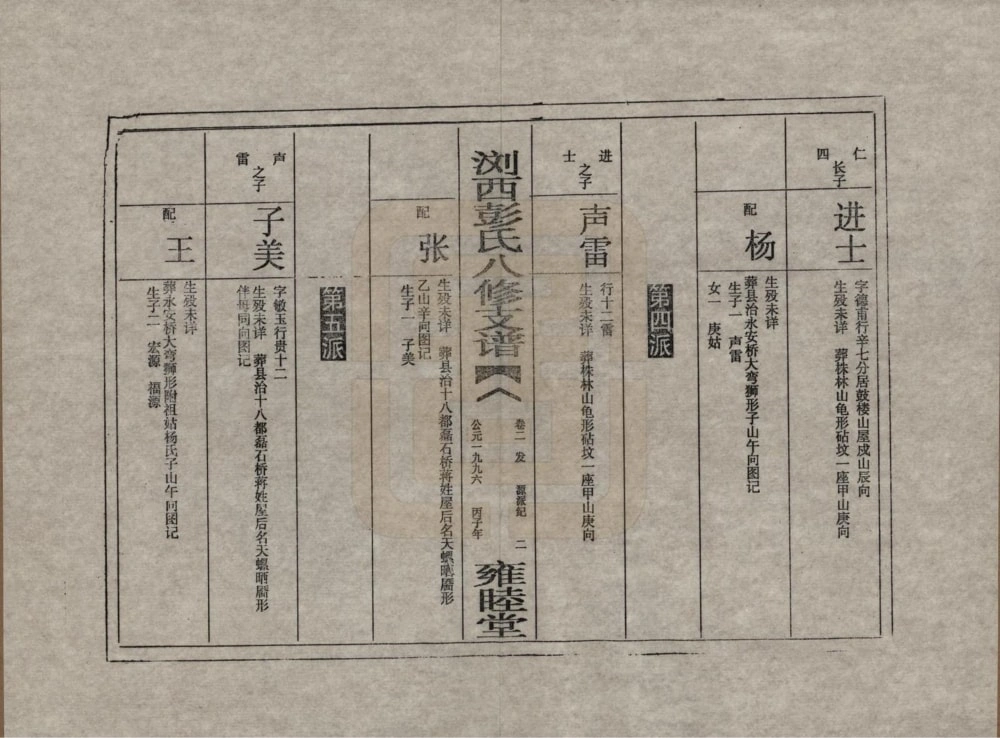 仁四
长子
进士
字德甫行辛七分居鼓楼山屋戍山辰向
生殁未详　葬株林山龟形砧坟一座甲山庚向
配
杨
生殁未详
葬县治永安桥大弯狮形子山午向图记
生子一　声雷
女一　庚姑
第四派
进士
之子
声雷
行十二雷
生殁未详　葬株林山龟形砧坟一座甲山庚向
浏西彭氏八修支谱
卷二　发　源派纪　二
公元一九九六　丙子年
雍睦堂
配
张
生殁未详　葬县治十八都磊石桥蒋姓屋后名天螺晒靥形
乙山辛向图记
生子一　子美
第五派
声雷
之子
子美
字敏玉行贵十二
生殁未详　葬县治十八都磊石桥蒋姓屋后名天螺晒靥形
伴母同向图记
配
王
生殁未详
葬永安桥大弯狮形附祖姑杨氏子山午向图记
生子二　宏源　福源